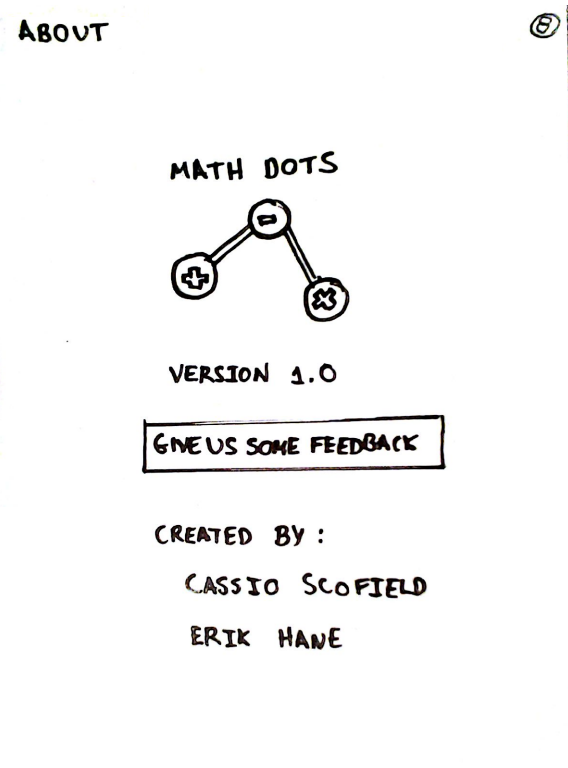 ABOUT
8
MATH DOTS
- 
+
×
VERSION 1.0
GIVE US SOME FEEDBACK
CREATED BY:
CASSIO SCOFIELD
ERIK HANE